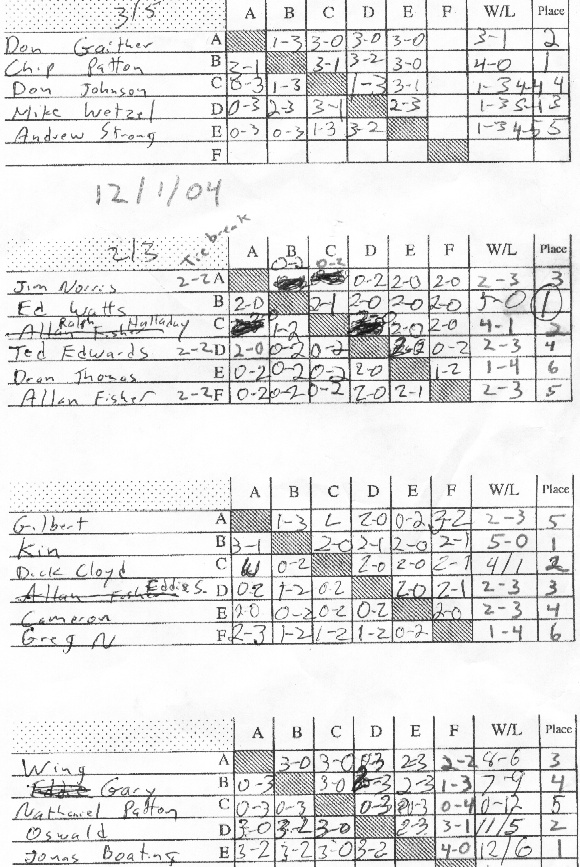 3/5 A B C D E F W/L Place
Don Gaither A 1-3 3-0 3-0 3-0 3-1 2
Chip Patton B 3-1 3-1 3-2 3-0 4-0 1
Don Johnson C 0-3 1-3 1-3 3-1 1-3 4-4 4
Mike Wetzel D 0-3 2-3 3-1 2-3 1-3 5-1 3
Andrew Strong E 0-3 0-3 1-3 3-2 1-3 4-5 5
F
12/1/04
2/3 Tie break A B C D E F W/L Place
0-2 0-2
Jim Norris 2-2 A 0-2 2-0 2-0 2-3 3
Ed Watts B 2-0 2-1 2-0 2-0 2-0 5-0 1
Ralph Halladay C 1-2 2-0 2-0 4-1 2
Ted Edwards 2-2 D 2-0 0-2 0-2 0-2 2-3 4
Dean Thomas E 0-2 0-2 0-2 2-0 1-2 1-4 6
Allan Fisher 2-2 F 0-2 0-2 0-2 2-0 2-1 2-3 5
A B C D E F W/L Place
Gilbert A 1-3 L 2-0 0-2 3-2 2-3 5
Kin B 3-1 2-0 2-1 2-0 2-1 5-0 1
Dick Cloyd C W 0-2 2-0 2-0 2-1 4/1 2
Allan Fisher Eddie S. D 0-2 1-2 0-2 2-0 2-1 2-3 3
Cameron E 2-0 0-2 0-2 0-2 2-0 2-3 4
Greg N F 2-3 1-2 1-2 1-2 0-2 1-4 6
A B C D E F W/L Place
Wing A 3-0 3-0 0-3 2-3 2-2 8-6 3
Gary B 0-3 3-0 0-3 2-3 1-3 7-9 4
Nathaniel Patton C 0-3 0-3 0-3 0-3 0-4 0-12 5
Oswald D 3-0 3-2 3-0 2-3 3-1 11/5 2
Jonas Boating E 3-2 3-2 3-0 3-2 4-0 12/6 1